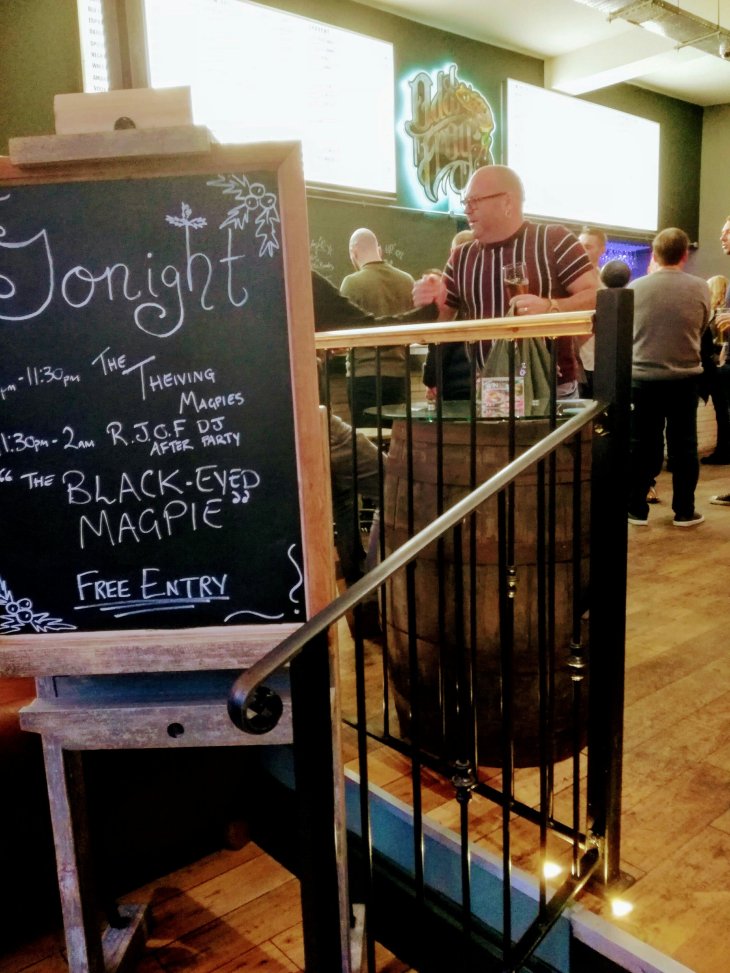 Tonight
pm-11:30pm THE
THEIVING
MAGPIES
11:30pm-2am R.J.O.F DJ
AFTER PARTY
"THE BLACK-EYED
MAGPIE"
FREE ENTRY